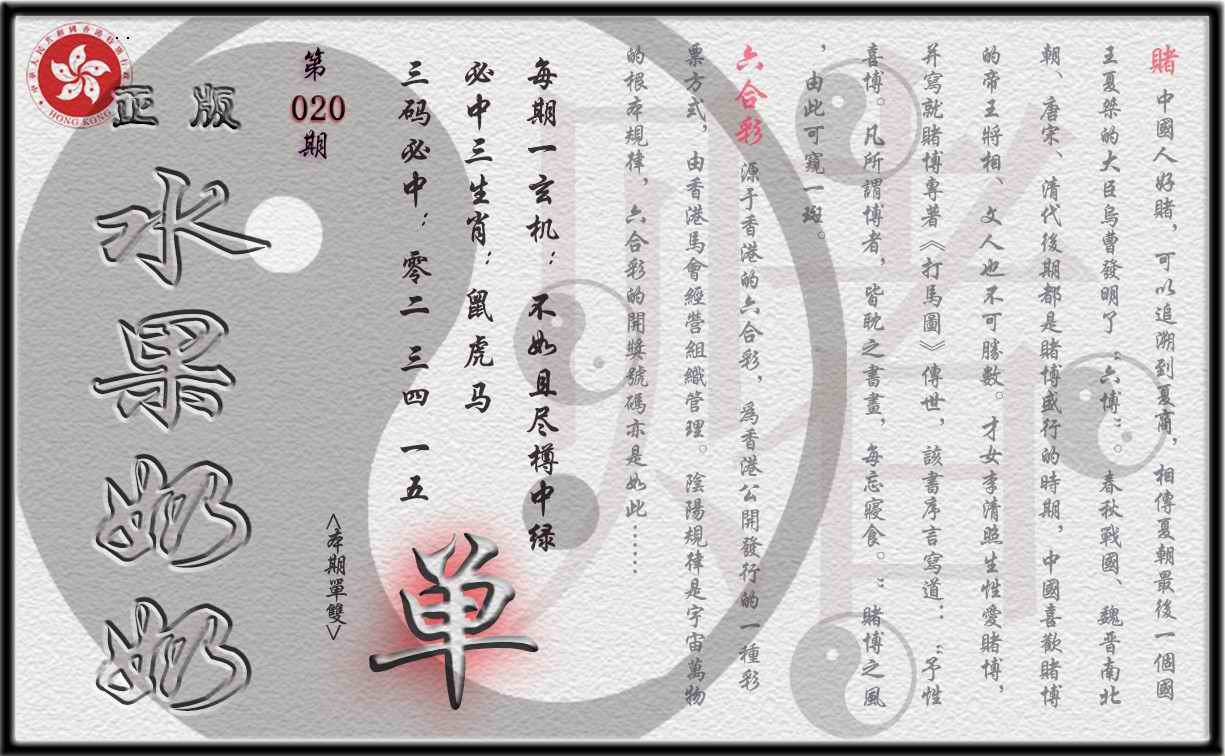 賭 中國人好賭，可以追溯到夏商，相傳夏朝最後一個國
王夏桀的大臣烏曹發明了“六博”。春秋戰國、魏晋南北
朝、唐宋、清代後期都是賭博盛行的時期，中國喜歡賭博
的帝王將相、文人也不可勝數。才女李清照生性愛賭博，
并寫就賭博專著《打馬圖》傳世，該書序言寫道：“予性
喜博。凡所謂博者，皆耽之書畫，每忘寢食。”賭博之風
，由此可窺一斑。
六合彩 源于香港的六合彩，爲香港公開發行的一種彩
票方式，由香港馬會經營組織管理。陰陽規律是宇宙萬物
的根本規律，六合彩的開獎號碼亦是如此……
每期一玄机：不如且尽樽中绿
必中三生肖：鼠虎马
三码必中：零二 三四 一五
第
020
期
<本期單雙>
单
正版
水果奶奶
中華人民共和國香港特別行政區
HONG KONG